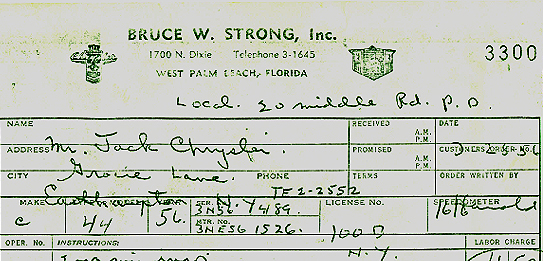 BRUCE W. STRONG, Inc.
1700 N. Dixie Telephone 3-1645
WEST PALM BEACH, FLORIDA
3300
Local. 20 middle Rd. P.B.
NAME RECEIVED A.M. P.M. DATE
ADDRESS Mr. Jack Chrysler. PROMISED A.M. P.M. CUSTOMERS ORDER NO.
CITY Gracie Lane. PHONE TERMS ORDER WRITTEN BY
Easthampton N.Y. TE 2-2552
MAKE SER. No. LICENSE No. SPEEDOMETER
C 44 56. 3N56. 4489. 1616
MTR. No. 3NE56 1526. 100 B
N.Y.
OPER. No. INSTRUCTIONS: LABOR CHARGE